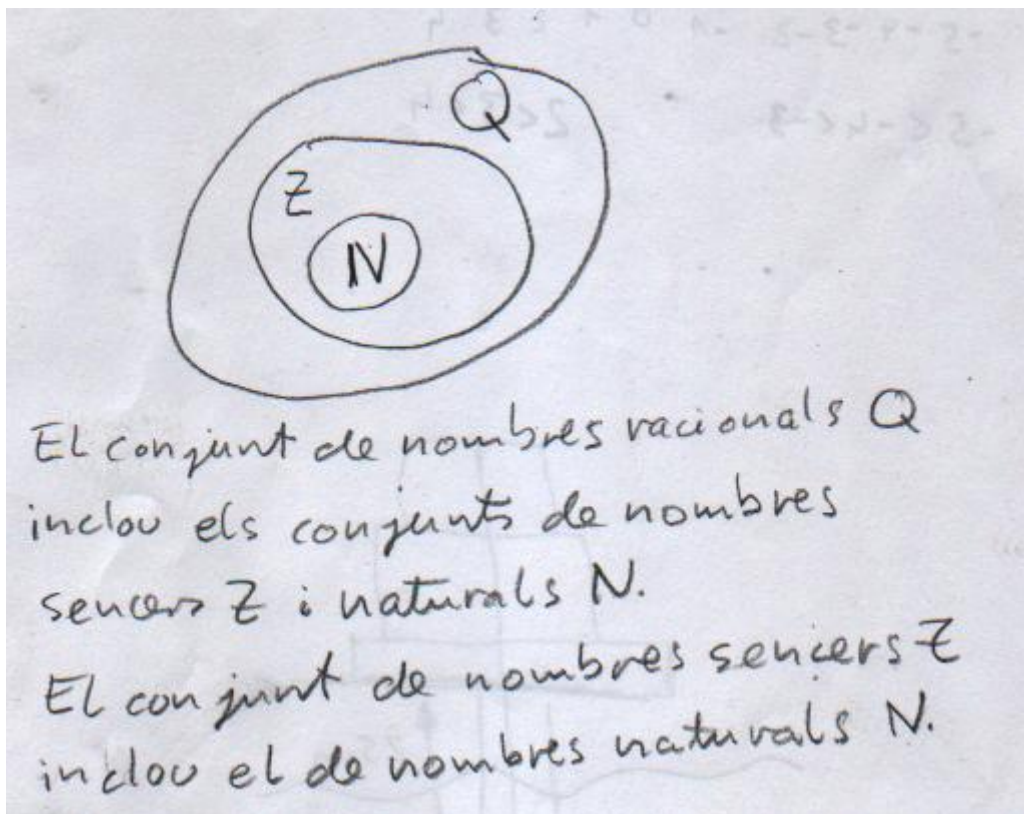 Q
Z
N
El conjunt de nombres racionals Q
inclou els conjunts de nombres
sencers Z i naturals N.
El conjunt de nombres sencers Z
inclou el de nombres naturals N.